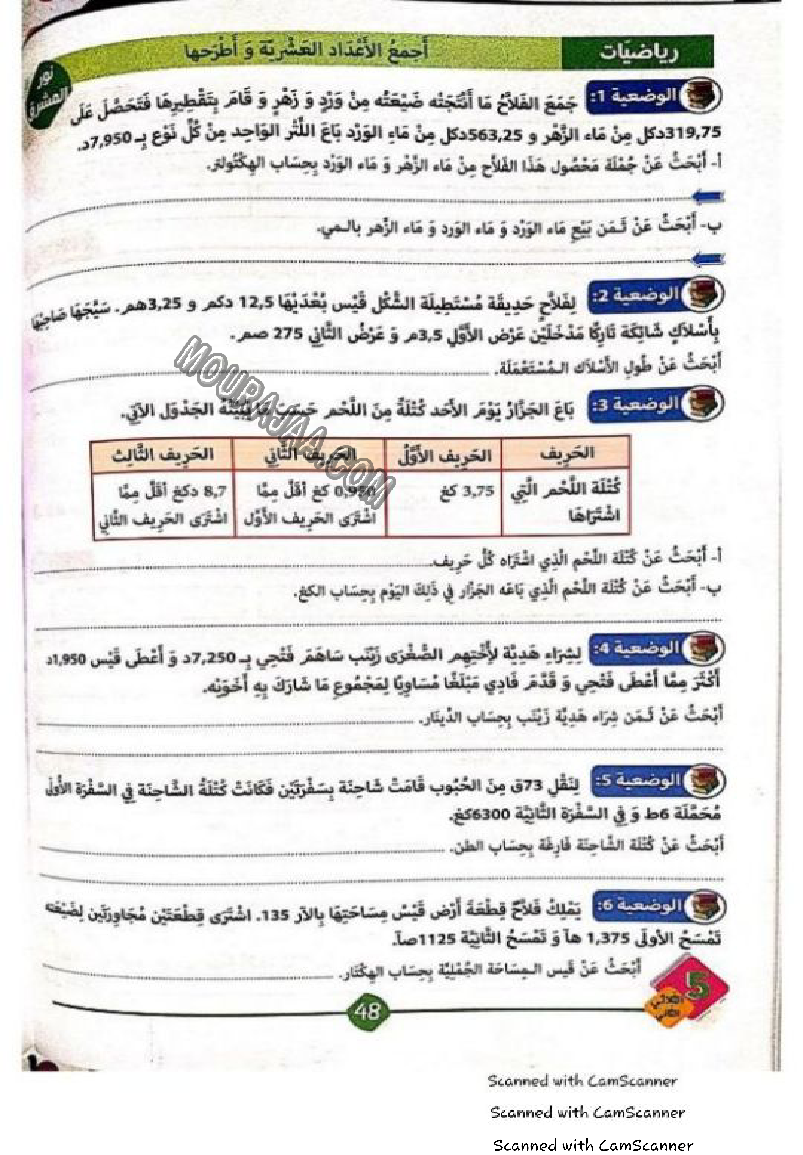 رياضيّات
أَجمعُ الأَعْدَاد العَشْريّة وَ أَطْرَحها
نور المشرق
الوضعية 1: جَمَعَ الفَلاَّحُ مَا أَنْتَجَتْه ضَيْعَتُه مِنْ وَرْدٍ وَ زَهْرٍ وَ قَامَ بِتَقْطِيرِهَا فَتَحَصَّلَ عَلَى
319,75دكل مِنْ مَاء الزَّهْر و 563,25دكل مِنْ مَاءِ الوَرْد بَاعَ اللِّتْر الوَاحِد مِنْ كُلِّ نَوْع بِـ 7,950د.
أ- أَبْحَثُ عَنْ جُمْلَة مَحْصُول هَذَا الفَلاَّح مِنْ مَاء الزَّهْر وَ مَاء الوَرْد بِحِسَاب الهِكْتُولتر.
ب- أَبْحَثُ عَنْ ثَـمَن بَيْعِ مَاء الوَرْد وَ مَاء الوَرد وَ مَاء الزَّهر بالـمي.
الوضعية 2: لِفَلاَّحٍ حَدِيقَة مُسْتَطِيلَة الشَّكْل قَيْس بُعْدَيْهَا 12,5 دكم و 3,25هم. سَيَّجَهَا صَاحِبُهَا
بِأَسْلاَكٍ شَائِكَة تَارِكًا مَدْخَلَيْن عَرْض الأَوَّلِ 3,5م وَ عَرْضُ الثَّانِي 275 صم.
أَبْحَثُ عَنْ طُولِ الأَسْلاَك الـمُسْتَعْمَلَة.
MOURAJAA.COM
الوضعية 3: بَاعَ الجَزَّارُ يَوْمَ الأَحَد كُتْلَةً مِنَ اللَّحْم حَسَبَ مَا يُبَيِّنُهُ الجَدْوَل الآتِي.
الحَرِيف الحَرِيف الأَوَّلُ الحَرِيف الثَّانِي الحَرِيف الثَّالِث
كُتْلَة اللَّحْم الَّتِي 3,75 كغ كغ أقَلّ مِمَّا 8,7 دكغ أَقَلّ مِمَّا
اشْتَرَاهَا اشْتَرَى الحَرِيف الأَوَّل اشْتَرَى الحَرِيف الثَّانِي
أ- أَبْحَثُ عَنْ كُتْلَة اللَّحْم الَّذِي اشْتَرَاه كُلّ حَرِيف.
ب- أَبْحَثُ عَنْ كُتْلَة اللَّحْم الَّذِي بَاعَه الجَزَّار فِي ذَلِكَ اليَوْم بِحِسَاب الكغ.
الوضعية 4: لِشِرَاءِ هَدِيَّة لأُخْتِهِم الصُّغْرَى زَيْنَب سَاهَمَ فَتْحِي بِـ 7,250د وَ أَعْطَى قَيْس 1,950د
أَكْثَرَ مِمَّا أَعْطَى فَتْحِي وَ قَدَّمَ فَادِي مَبْلَغًا مُسَاوِيًا لِمَجْمُوعِ مَا شَارَكَ بِهِ أَخَوَيْه.
أَبْحَثُ عَنْ ثَـمَن شِرَاء هَدِيَّة زَيْنَب بِحِسَاب الدِّينَار.
الوضعية 5: لِنَقْلِ 73ق مِنَ الحُبُوب قَامَتْ شَاحِنَة بِسَفْرَتَيْن فَكَانَتْ كُتْلَةُ الشَّاحِنَة فِي السَّفْرَة الأُولَى
مُحَمَّلَة 6ط وَ فِي السَّفْرَة الثَّانِيَة 6300كغ.
أَبْحَثُ عَنْ كُتْلَة الشَّاحِنَة فَارِغَة بِحِسَاب الطن.
الوضعية 6: يَمْلِكُ فَلاَّحٌ قِطْعَةَ أَرْض قَيْسُ مِسَاحَتِهَا بِالآر 135. اشْتَرَى قِطْعَتَيْن مُجَاوِرَتَيْن لِضَيْعَتِه
تَمْسَحُ الأُولَى 1,375 هآ وَ تَمْسَحُ الثَّانِيَة 1125صآ.
أَبْحَثُ عَنْ قَيس الـمِسَاحَة الجُمْلِيَّة بِحِسَاب الهِكْتَار.
5
الثلاثي الثاني
48
Scanned with CamScanner
Scanned with CamScanner
Scanned with CamScanner